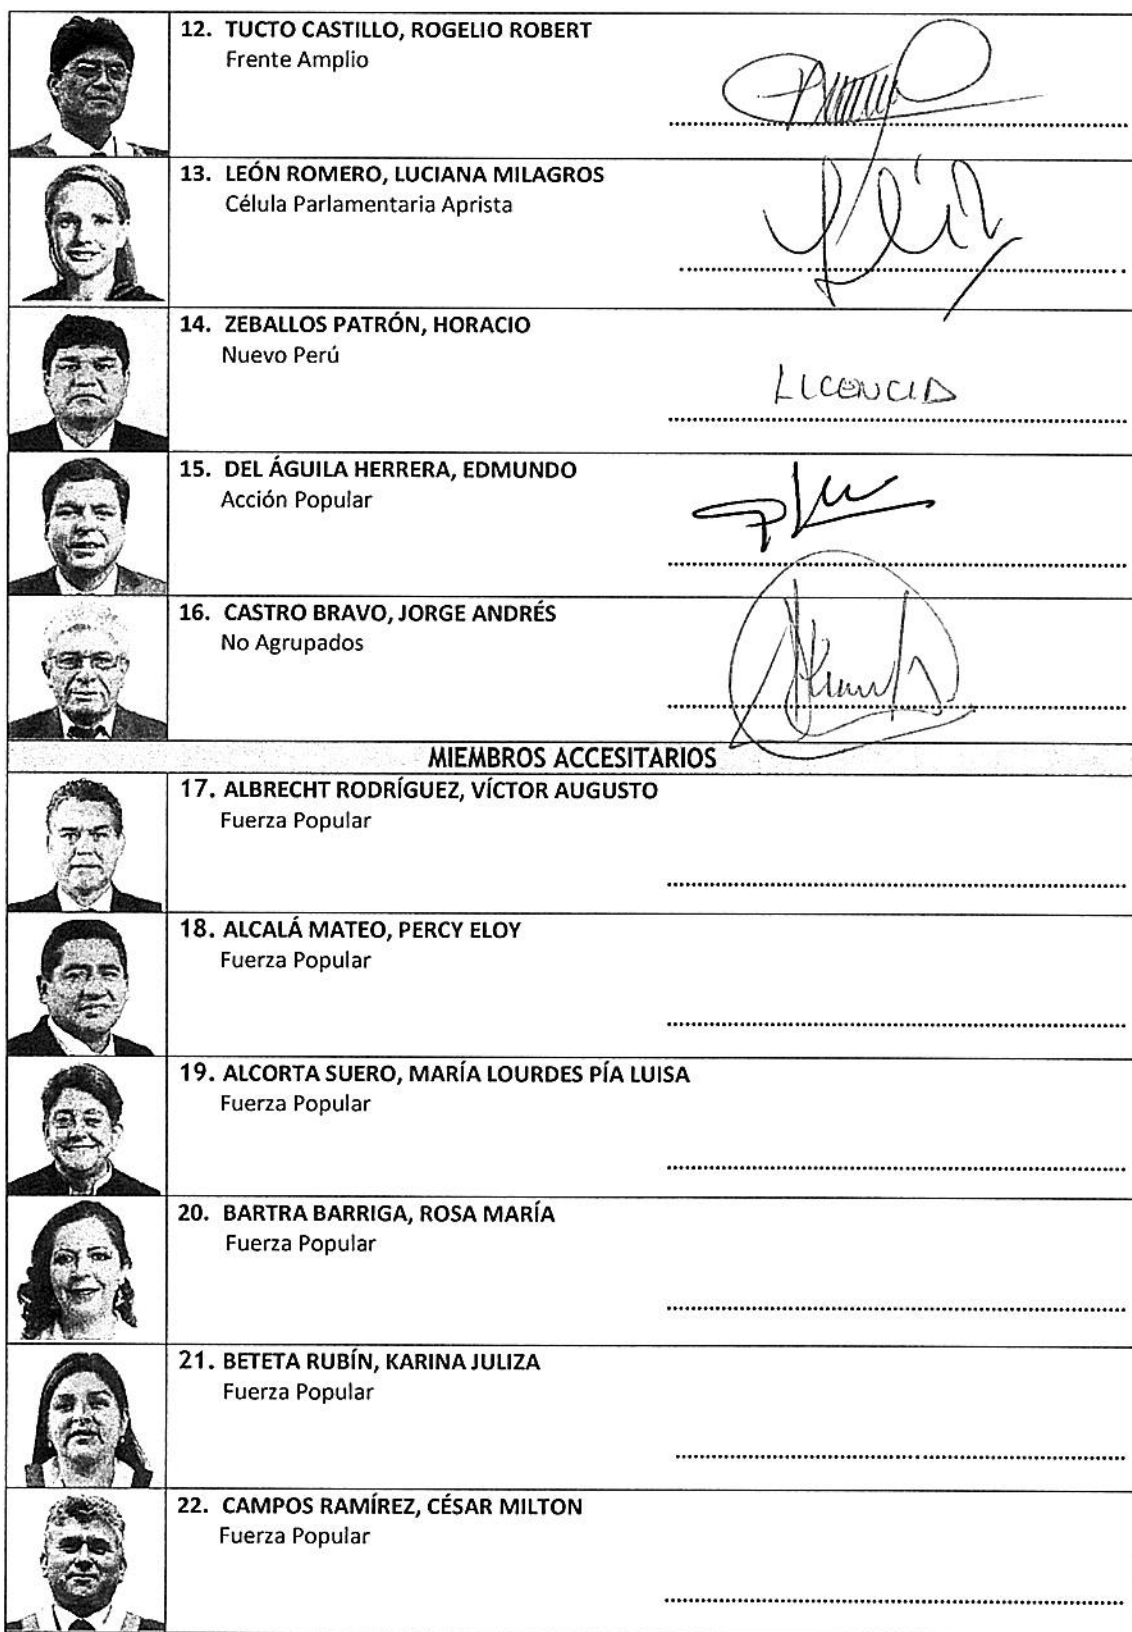 12. TUCTO CASTILLO, ROGELIO ROBERT
Frente Amplio
13. LEÓN ROMERO, LUCIANA MILAGROS
Célula Parlamentaria Aprista
14. ZEBALLOS PATRÓN, HORACIO
Nuevo Perú
LICENCIA
15. DEL ÁGUILA HERRERA, EDMUNDO
Acción Popular
16. CASTRO BRAVO, JORGE ANDRÉS
No Agrupados
MIEMBROS ACCESITARIOS
17. ALBRECHT RODRÍGUEZ, VÍCTOR AUGUSTO
Fuerza Popular
18. ALCALÁ MATEO, PERCY ELOY
Fuerza Popular
19. ALCORTA SUERO, MARÍA LOURDES PÍA LUISA
Fuerza Popular
20. BARTRA BARRIGA, ROSA MARÍA
Fuerza Popular
21. BETETA RUBÍN, KARINA JULIZA
Fuerza Popular
22. CAMPOS RAMÍREZ, CÉSAR MILTON
Fuerza Popular